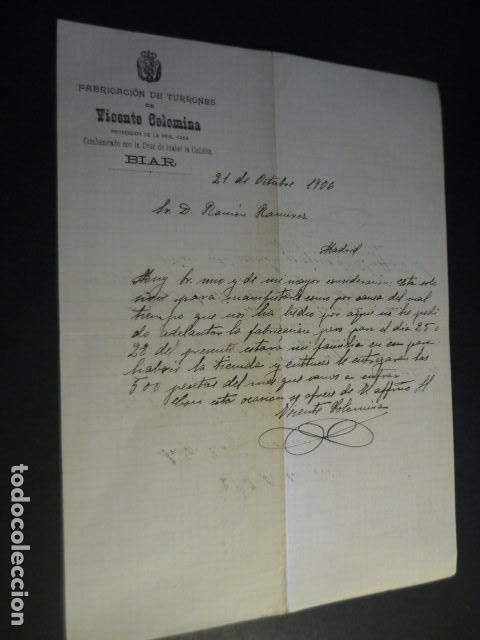 FABRICACIÓN DE TURRONES
DE
Vicente Colomina
PROVEEDOR DE LA REAL CASA
Condecorado con la Cruz de Isabel la Católica
BIAR
21 de Octubre 1906
Sr. D. Ramón Ramirez
Madrid
Muy Sr. mio y de mi mayor consideración esta solo
sirve para manifestarle como por causa del mal
tiempo que nos ha hecho por aqui no he podi
do adelantar la fabricación pero para el dia 25 o
28 del presente estará mi familia en esa para
habrir la tienda y entonces le entregarán las
500 pesetas del mes que vamos a entrar
Con esta ocasion se ofrece de V. affmo
Vicente Colomina
todocoleccion